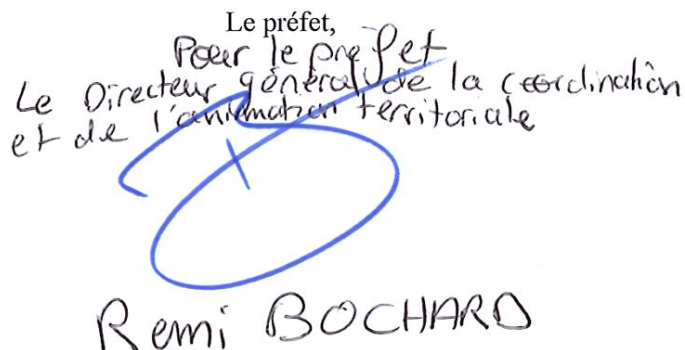 Le préfet,
Pour le préfet
Le Directeur général de la coordination
et de l'animation territoriale
Remi BOCHARD